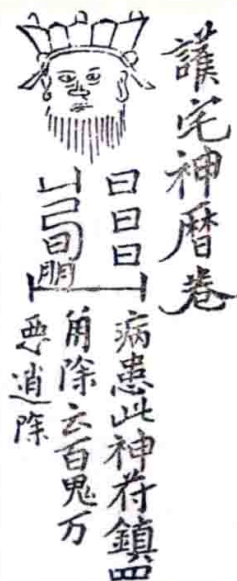 護宅神曆卷
日日日
弓
明
病患此神符鎮四
角除云百鬼万
悪消除